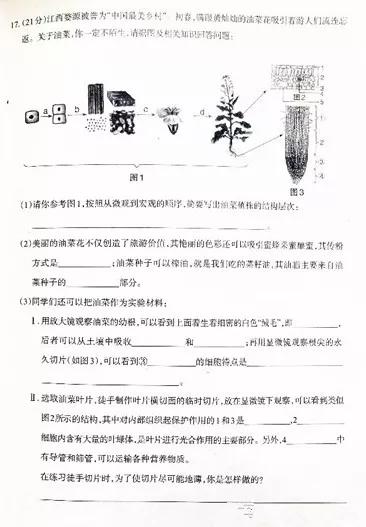 17.(21分)江西婺源被誉为“中国最美乡村”。初春,满眼黄灿灿的油菜花吸引着游人们流连忘
返。关于油菜,你一定不陌生,请据图及相关知识回答问题:
a b c d
图1
1 2 3 4
图2
1 2 3 4
图3
(1)请你参考图1,按照从微观到宏观的顺序,简要写出油菜植株的结构层次:
(2)美丽的油菜花不仅创造了旅游价值,其艳丽的色彩还可以吸引蜜蜂来采蜜,其传粉
方式是________;油菜种子可以榨油,就是我们吃的菜籽油,其油脂主要来自油
菜种子的________部分。
(3)同学们还可以把油菜作为实验材料:
Ⅰ.用放大镜观察油菜的幼根,可以看到上面着生着细密的白色“绒毛”,即________,
后者可以从土壤中吸收________和________;再用显微镜观察根尖的永
久切片(如图3),可以看到③________的细胞特点是________
Ⅱ.选取油菜叶片,徒手制作叶片横切面的临时切片,放在显微镜下观察,可以看到类似
图2所示的结构,其中对内部组织起保护作用的1和3是________,2________
细胞内含有大量的叶绿体,是叶片进行光合作用的主要部分。另外,4________中
有导管和筛管,可以运输各种营养物质。
在练习徒手切片时,为了使切片尽可能地薄,你是怎样做的?